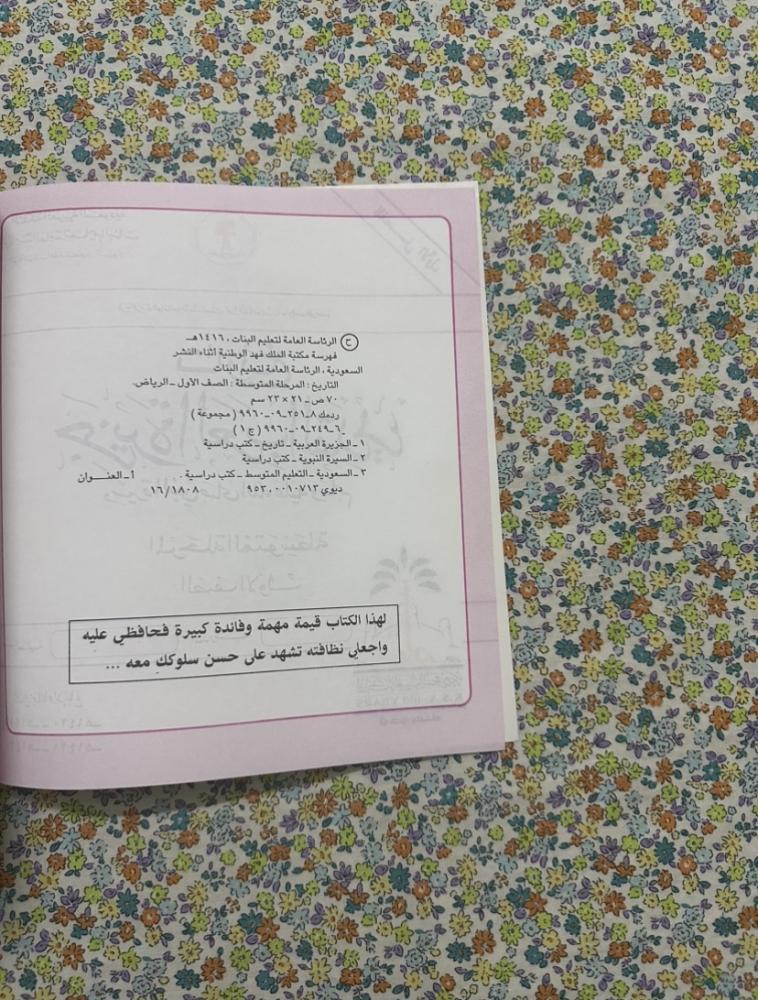 ح الرئاسة العامة لتعليم البنات، ١٤١٦هـ
فهرسة مكتبة الملك فهد الوطنية أثناء النشر
السعودية ، الرئاسة العامة لتعليم البنات
التاريخ : المرحلة المتوسطة : الصف الأول ـ الرياض.
٧٠ ص ـ ٢١ × ٢٣ سم
ردمك ٨ـ٢٥١ـ٠٩ـ٩٩٦٠ ( مجموعة )
٦ـ٢٤٩ـ٠٩ـ٩٩٦٠ ( ج ١ )
١ ـ الجزيرة العربية ـ تاريخ ـ كتب دراسية
٢ ـ السيرة النبوية ـ كتب دراسية
٣ ـ السعودية ـ التعليم المتوسط ـ كتب دراسية . أ ـ العنـــوان
ديوي ٩٥٣,٠٠١٠٧١٣ ١٦/١٨٠٨
لهذا الكتاب قيمة مهمة وفائدة كبيرة فحافظي عليه
واجعلي نظافته تشهد على حسن سلوككِ معه ...